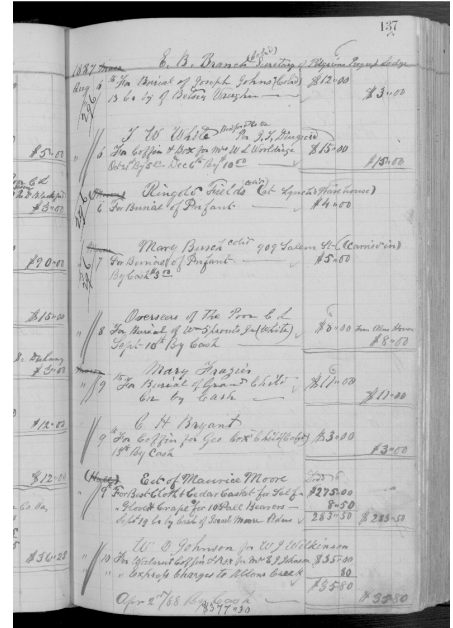 137
1887 E. B. Branch (col'd) Secretary of Pilgrims Lodge
Aug 6 For Burial of Joseph Johns (Col'd) $12=00
13 Cr by G. Vaughn $3=00
T W White Per J. T.
6 For Coffin & Box for Mrs W L Worldridge $15=00
Oct 21st By 5 Dec 6th By 10 00 $15=00
Ringold Fields (col'd) (at Lynch's Warehouse)
6 For Burial of Infant $4=00
Mary col'd 909 Salem St (Carried in)
7 For Burial of Infant $5=00
By Cash $3 00
Overseers of the Poor C L
8 For Burial of Wm Sprouts (White) $8=00 from Alms House
Sept 10th By Cash $8=00
Mary Frazier
9 For Burial of Grand Child $11=00
Cr by Cash $11=00
C H Bryant
9 For Coffin for Geo Cox Child $3=00
18th By Cash $3=00
Est of Maurice Moore
9 For Best Cloth Cedar Casket for Self $275=00
Gloves & Crape for 10 Pall Bearers 8=50
Sept 19 Cr by Cash of Moore 283=50 $283=50
W. O. Johnson for W J Wilkinson
10 For Walnut Coffin & Box for Mr E J Johnson $35=00
" Express Charges to Creek 80
$35=80
Apr 2nd/88 By Cash $35=80
$377=30
$5=00
C L
$3=00
$90=00
$15=00
$3=00
$12=00
$12=00
$36=25